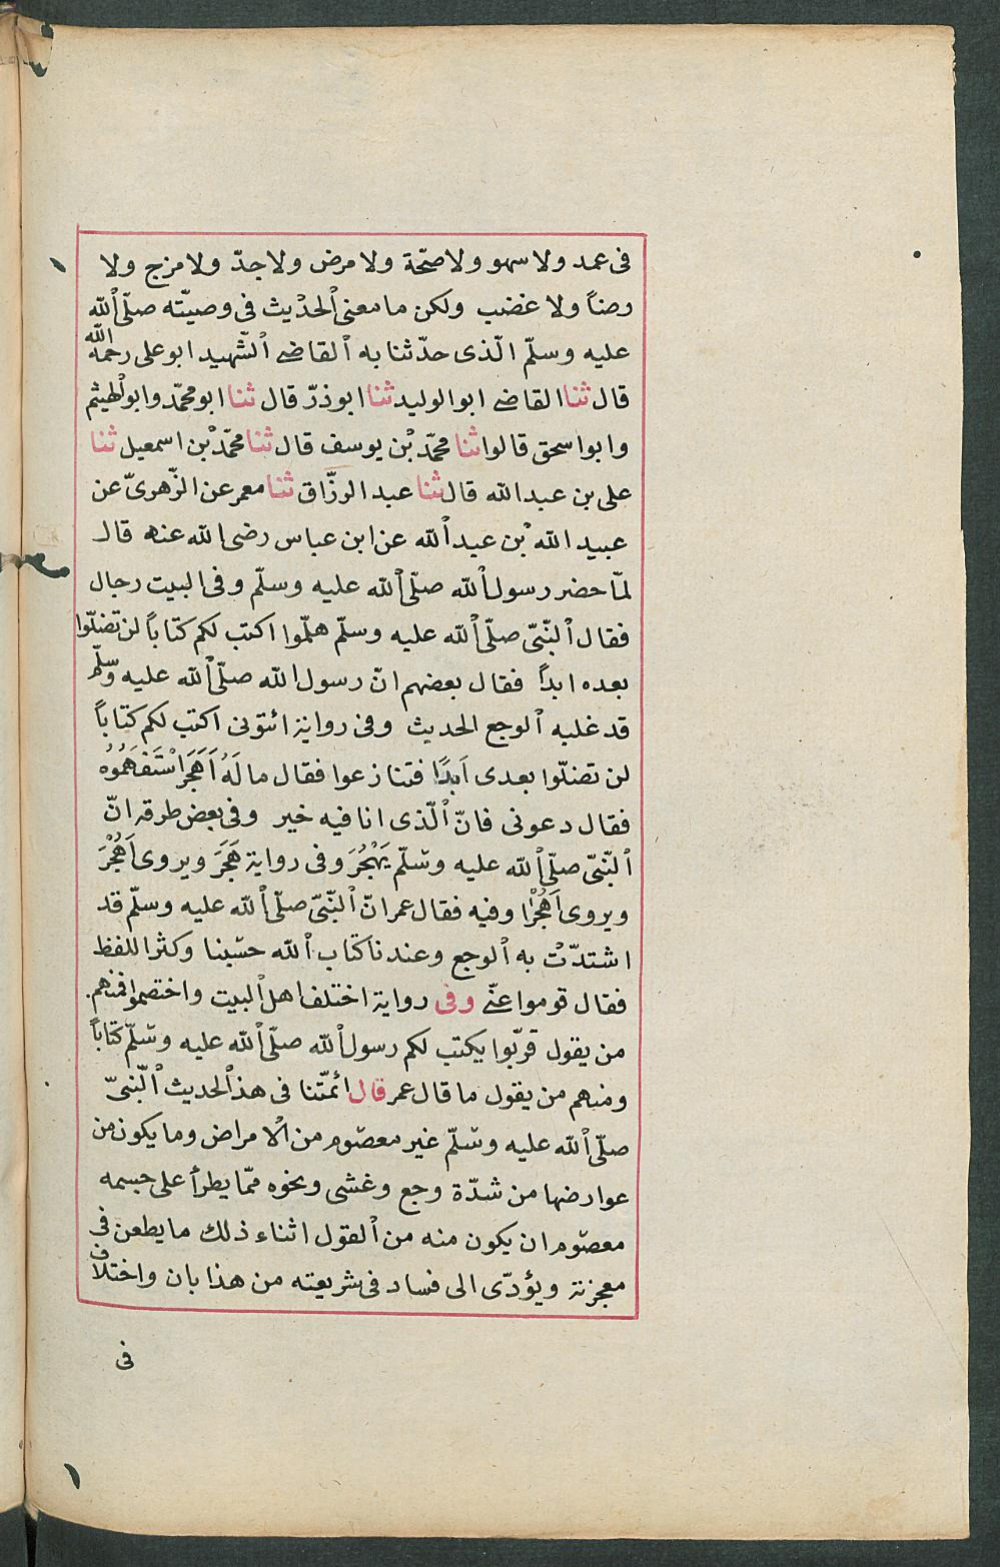 فى عمد ولا سهو ولا صحّة ولا مرض ولا جدّ ولا مزح ولا
رضاً ولا غضب ولكن ما معنى الحديث فى وصيّته صلّى الله
عليه وسلّم الّذى حدّثنا به القاضى الشّهيد ابو على رحمه الله
قال ثنا القاضى ابو الوليد ثنا ابو ذرّ قال ثنا ابو محمّد وابو الهيثم
وابو اسحق قالوا ثنا محمّد بن يوسف قال ثنا محمّد بن اسمعيل ثنا
على بن عبد الله قال ثنا عبد الرزّاق ثنا معمر عن الزّهرىّ عن
عبيد الله بن عبد الله عن ابن عباس رضى الله عنه قال
لمّا حضر رسول الله صلّى الله عليه وسلّم وفى البيت رجال
فقال النّبىّ صلّى الله عليه وسلّم هلمّوا اكتب لكم كتاباً لن تضلّوا
بعده ابداً فقال بعضهم انّ رسول الله صلّى الله عليه وسلّم
قد غلبه الوجع الحديث وفى رواية ائتونى اكتب لكم كتاباً
لن تضلّوا بعدى اَبدًا فتنازعوا فقال ما لَهُ اَهَجَرَ اسْتَفْهِمُوُه
فقال دعونى فانّ الّذى انا فيه خير وفى بعض طرقه انّ
النّبىّ صلّى الله عليه وسّلم يَهْجُرُ وفى رواية هَجَرَ ويروى اَهُجْرَ
ويروى اَهُجْرًا وفيه فقال عمر انّ النّبىّ صلّى الله عليه وسلّم قد
اشتدّتْ به الوجع وعندنا كتاب الله حسْبنا وكثر اللفظ
فقال قوموا عنّى وفى رواية اختلف اهل البيت واختصموا فمنهم
من يقول قرّبوا يكتب لكم رسول الله صلّى الله عليه وسّلم كتاباً
ومنهم من يقول ما قال عمر قال ائمّتنا فى هذ الحديث النّبىّ
صلّى الله عليه وسّلم غير معصوم من الامراض وما يكون من
عوارضها من شدّة وجع وغشى ونحوه ممّا يطرأ على جسمه
معصوم ان يكون منه من القول اثناء ذلك ما يطعن فى
معجزته ويؤدّى الى فساد فى شريعته من هذابان واختلاف
فى